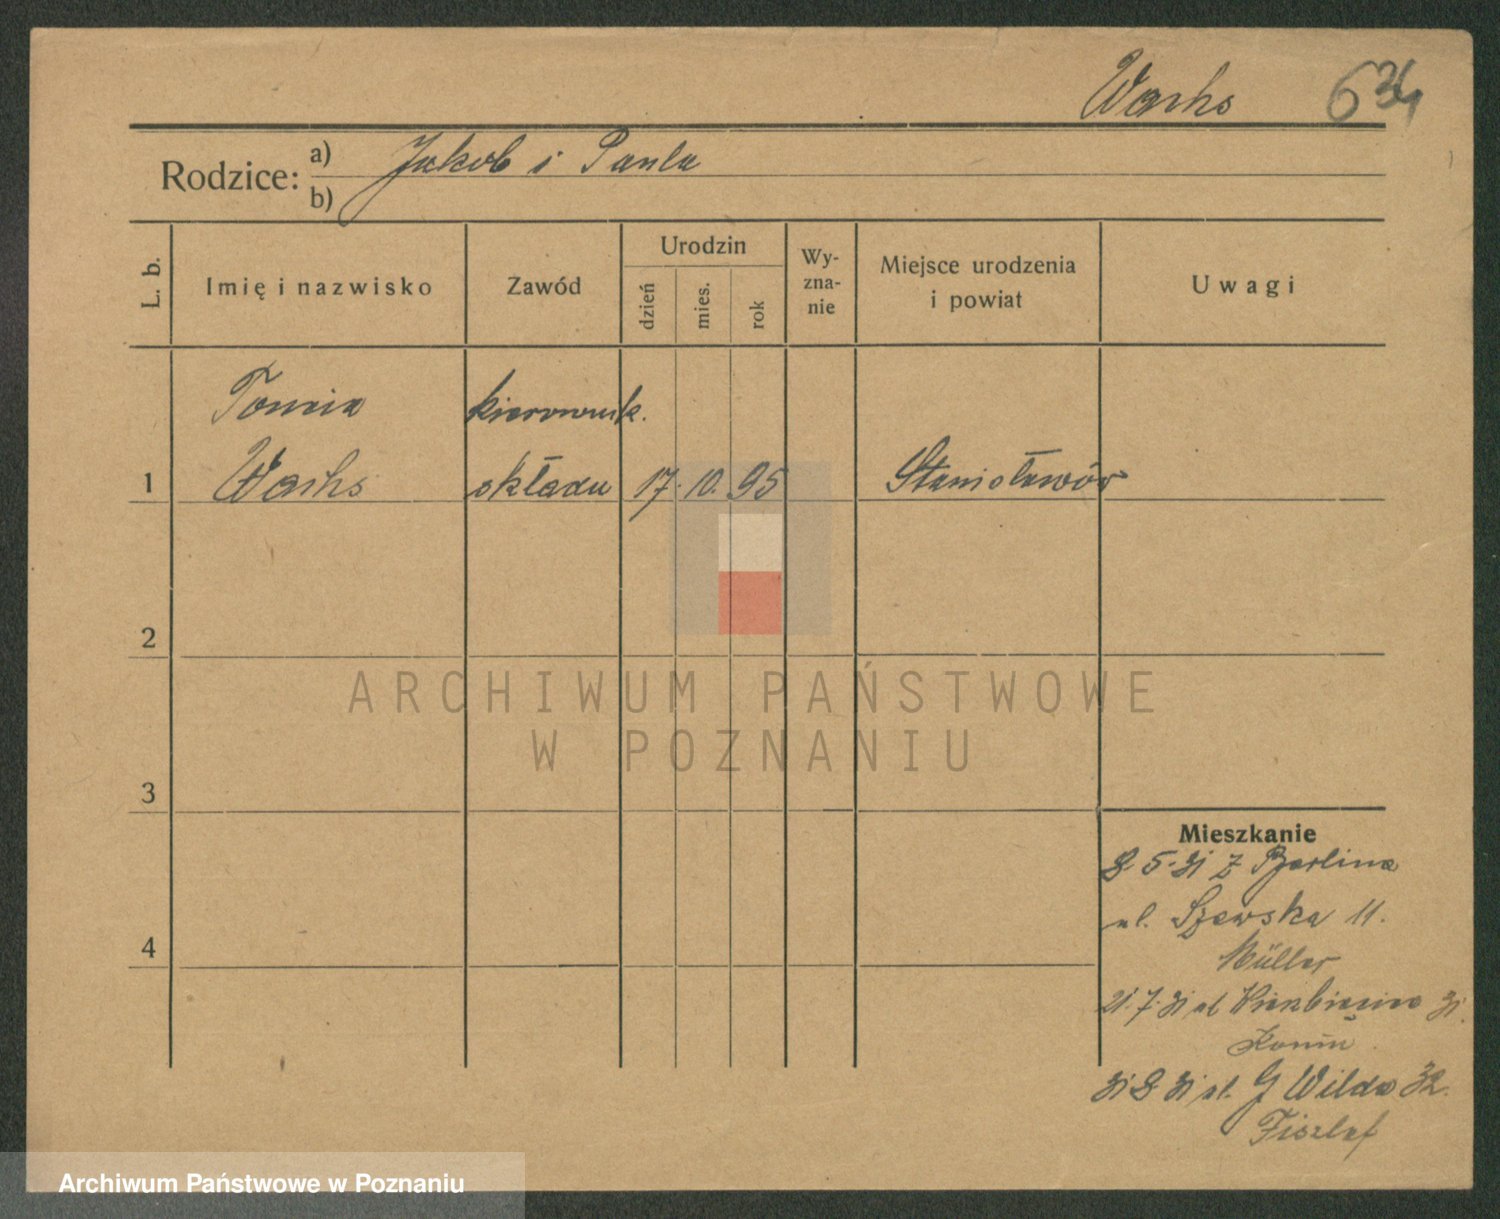 Wachs 634
Rodzice: a) Jakob i Paula
b)
L. b. Imię i nazwisko Zawód Urodzin dzień mies. rok Wy-zna-nie Miejsce urodzenia i powiat Uwagi
kierownik.
1 Wachs składu 17. 10. 95 Stanisławów
2
ARCHIWUM PAŃSTWOWE
W POZNANIU
3
Mieszkanie
8·5·31 z Berlina
ul. Szewska 11.
Müller
4
21·7·31 ul 31.
31·8·31 ul. G Wilda 32.
Archiwum Państwowe w Poznaniu